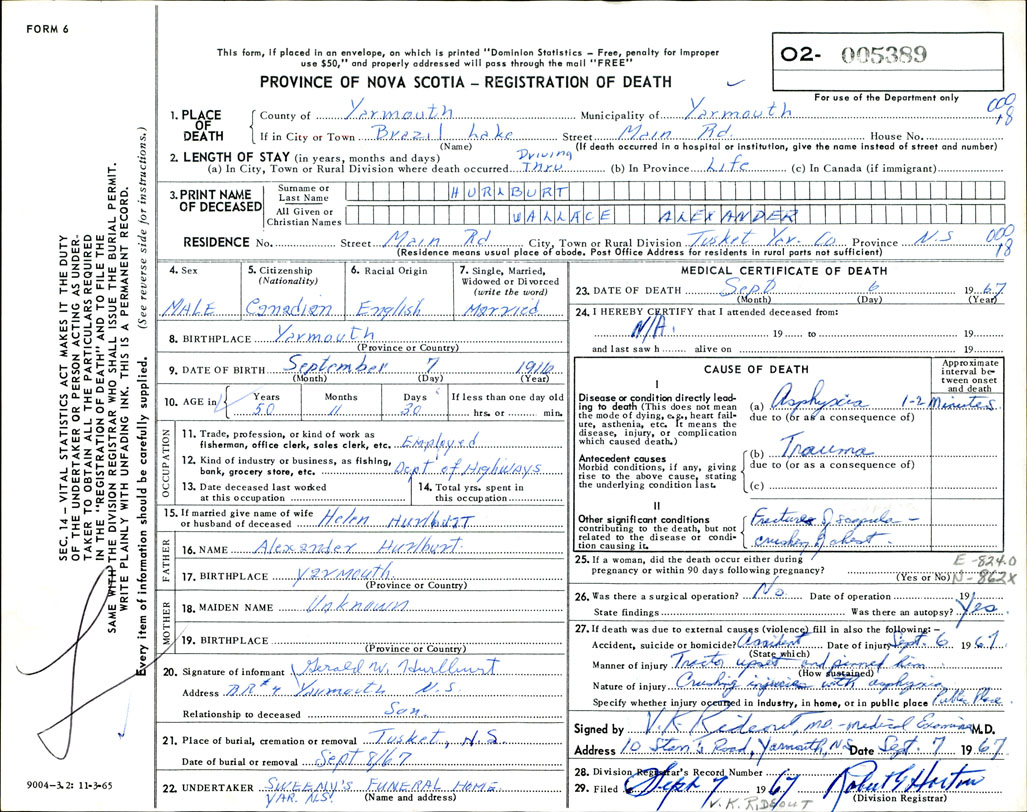 FORM 6
This form, if placed in an envelope, on which is printed "Dominion Statistics – Free, penalty for improper
use $50," and properly addressed will pass through the mail "FREE"
PROVINCE OF NOVA SCOTIA – REGISTRATION OF DEATH
02- 005389
For use of the Department only
1. PLACE OF DEATH County of Yarmouth Municipality of Yarmouth 000 18
If in City or Town Brazil Lake Street Main Rd. House No.
(Name) (If death occurred in a hospital or institution, give the name instead of street and number)
2. LENGTH OF STAY (in years, months and days)
(a) In City, Town or Rural Division where death occurred Driving Thru (b) In Province Life (c) In Canada (if immigrant)
3. PRINT NAME OF DECEASED Surname or Last Name HURLBURT
All Given or Christian Names WALLACE ALEXANDER
RESIDENCE No. Street Main Rd City, Town or Rural Division Tusket Yar. Co. Province N.S 000 18
(Residence means usual place of abode. Post Office Address for residents in rural parts not sufficient)
4. Sex MALE
5. Citizenship (Nationality) Canadian
6. Racial Origin English
7. Single, Married, Widowed or Divorced (write the word) Married
8. BIRTHPLACE Yarmouth
(Province or Country)
9. DATE OF BIRTH September 7 1916
(Month) (Day) (Year)
10. AGE in Years 50 Months 11 Days 30 If less than one day old hrs. or min.
OCCUPATION
11. Trade, profession, or kind of work as fisherman, office clerk, sales clerk, etc. Employed
12. Kind of industry or business, as fishing, bank, grocery store, etc. Dept of Highways
13. Date deceased last worked at this occupation
14. Total yrs. spent in this occupation
15. If married give name of wife or husband of deceased Helen Hurlburt
FATHER
16. NAME Alexander Hurlburt
17. BIRTHPLACE Yarmouth
(Province or Country)
MOTHER
18. MAIDEN NAME Unknown
19. BIRTHPLACE
(Province or Country)
20. Signature of informant Gerald W. Hurlburt
Address R.R #4 Yarmouth N.S.
Relationship to deceased Son.
21. Place of burial, cremation or removal Tusket, N.S.
Date of burial or removal Sept 8/67
22. UNDERTAKER SWEENY'S FUNERAL HOME
YAR. NS. (Name and address)
MEDICAL CERTIFICATE OF DEATH
23. DATE OF DEATH Sept. 6 1967
(Month) (Day) (Year)
24. I HEREBY CERTIFY that I attended deceased from:
N/A. 19 to 19
and last saw h alive on 19
CAUSE OF DEATH
Approximate interval between onset and death
I
Disease or condition directly leading to death (This does not mean the mode of dying, e.g., heart failure, asthenia, etc. It means the disease, injury, or complication which caused death.)
(a) Asphyxia 1-2 Minutes
due to (or as a consequence of)
Antecedent causes
Morbid conditions, if any, giving rise to the above cause, stating the underlying condition last.
(b) Trauma
due to (or as a consequence of)
(c)
II
Other significant conditions contributing to the death, but not related to the disease or condition causing it.
Fractures of scapula –
crushing of chest.
25. If a woman, did the death occur either during pregnancy or within 90 days following pregnancy?
(Yes or No)
E-824.0
N-862X
26. Was there a surgical operation? No Date of operation 19
State findings Was there an autopsy? Yes
27. If death was due to external causes (violence) fill in also the following: –
Accident, suicide or homicide? Accident Date of injury Sept. 6 1967
(State which)
Manner of injury Tractor upset and pinned him
(How sustained)
Nature of injury Crushing injuries with asphyxia
Specify whether injury occurred in industry, in home, or in public place Public Place.
Signed by V.K. Rideout, MD – medical Examiner M.D.
Address 10 Road, Yarmouth, NS Date Sept. 7 1967
28. Division Registrar's Record Number
29. Filed Sept 7 1967 Robert G Horton
(Division Registrar)
V.K. RIDEOUT
SEC. 14 – VITAL STATISTICS ACT MAKES IT THE DUTY
OF THE UNDERTAKER OR PERSON ACTING AS UNDER-
TAKER TO OBTAIN ALL THE PARTICULARS REQUIRED
IN THE "REGISTRATION OF DEATH" AND TO FILE THE
SAME WITH THE DIVISION REGISTRAR WHO SHALL ISSUE THE BURIAL PERMIT.
WRITE PLAINLY WITH UNFADING INK. THIS IS A PERMANENT RECORD.
Every item of information should be carefully supplied. (See reverse side for instructions.)
9004-3.2: 11-3-65